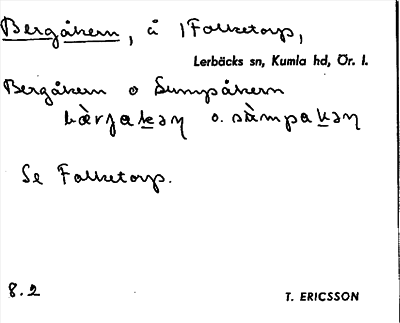 Bergåkern, å 1 Folketorp,
Lerbäcks sn, Kumla hd, Ör. l.
Bergåkern o Sumpåkern
bàrjakən o. sùmpakən
Se Folketorp.
8.2
T. ERICSSON